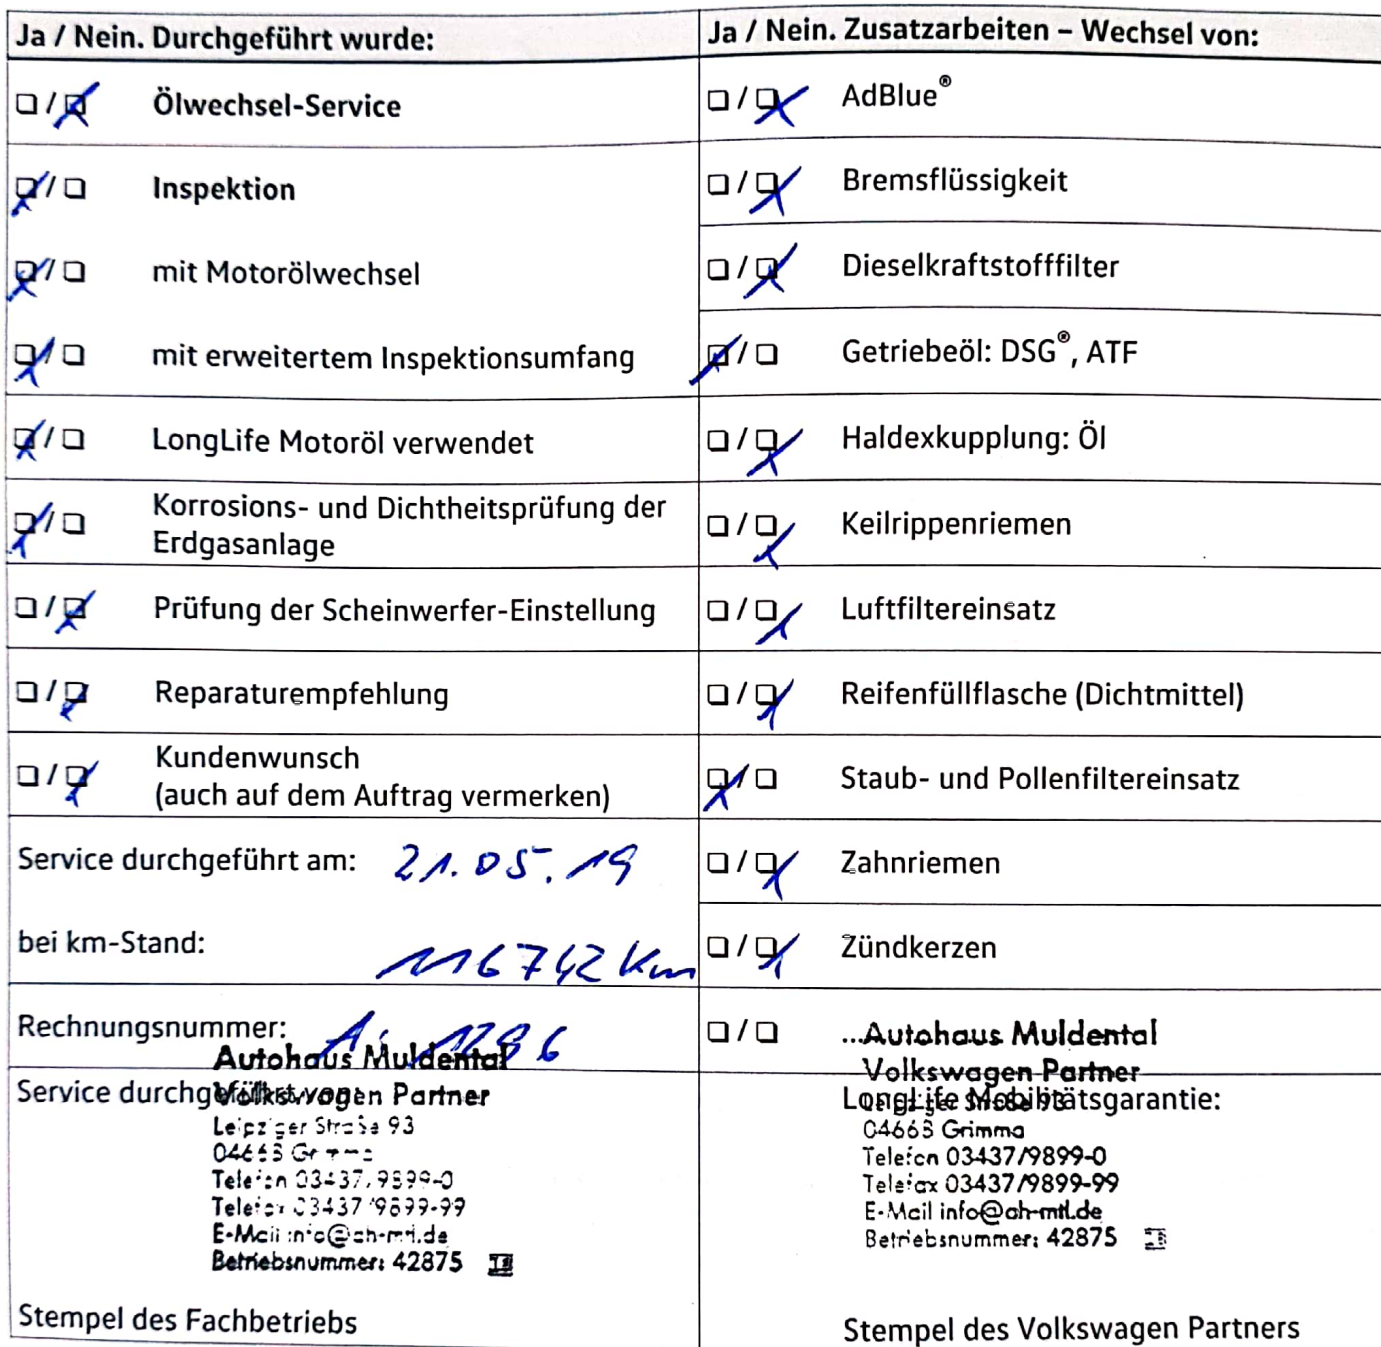 Ja / Nein. Durchgeführt wurde:
☐ / ☒ Ölwechsel-Service
☒ / ☐ Inspektion
☒ / ☐ mit Motorölwechsel
☒ / ☐ mit erweitertem Inspektionsumfang
☒ / ☐ LongLife Motoröl verwendet
☒ / ☐ Korrosions- und Dichtheitsprüfung der
Erdgasanlage
☐ / ☒ Prüfung der Scheinwerfer-Einstellung
☐ / ☒ Reparaturempfehlung
☐ / ☒ Kundenwunsch
(auch auf dem Auftrag vermerken)
Service durchgeführt am: 21.05.19
bei km-Stand: 116742 km
Rechnungsnummer: 1296
Service durchgeführt von:
Autohaus Muldental
Volkswagen Partner
Leipziger Straße 93
04668 Grimma
Telefon 03437/9899-0
Telefax 03437/9899-99
E-Mail info@ah-mtl.de
Betriebsnummer: 42875
Stempel des Fachbetriebs
Ja / Nein. Zusatzarbeiten – Wechsel von:
☐ / ☒ AdBlue®
☐ / ☒ Bremsflüssigkeit
☐ / ☒ Dieselkraftstofffilter
☒ / ☐ Getriebeöl: DSG®, ATF
☐ / ☒ Haldexkupplung: Öl
☐ / ☒ Keilrippenriemen
☐ / ☒ Luftfiltereinsatz
☐ / ☒ Reifenfüllflasche (Dichtmittel)
☒ / ☐ Staub- und Pollenfiltereinsatz
☐ / ☒ Zahnriemen
☐ / ☒ Zündkerzen
☐ / ☐ ...
Autohaus Muldental
Volkswagen Partner
LongLife Mobilitätsgarantie:
Leipziger Straße 93
04668 Grimma
Telefon 03437/9899-0
Telefax 03437/9899-99
E-Mail info@ah-mtl.de
Betriebsnummer: 42875
Stempel des Volkswagen Partners